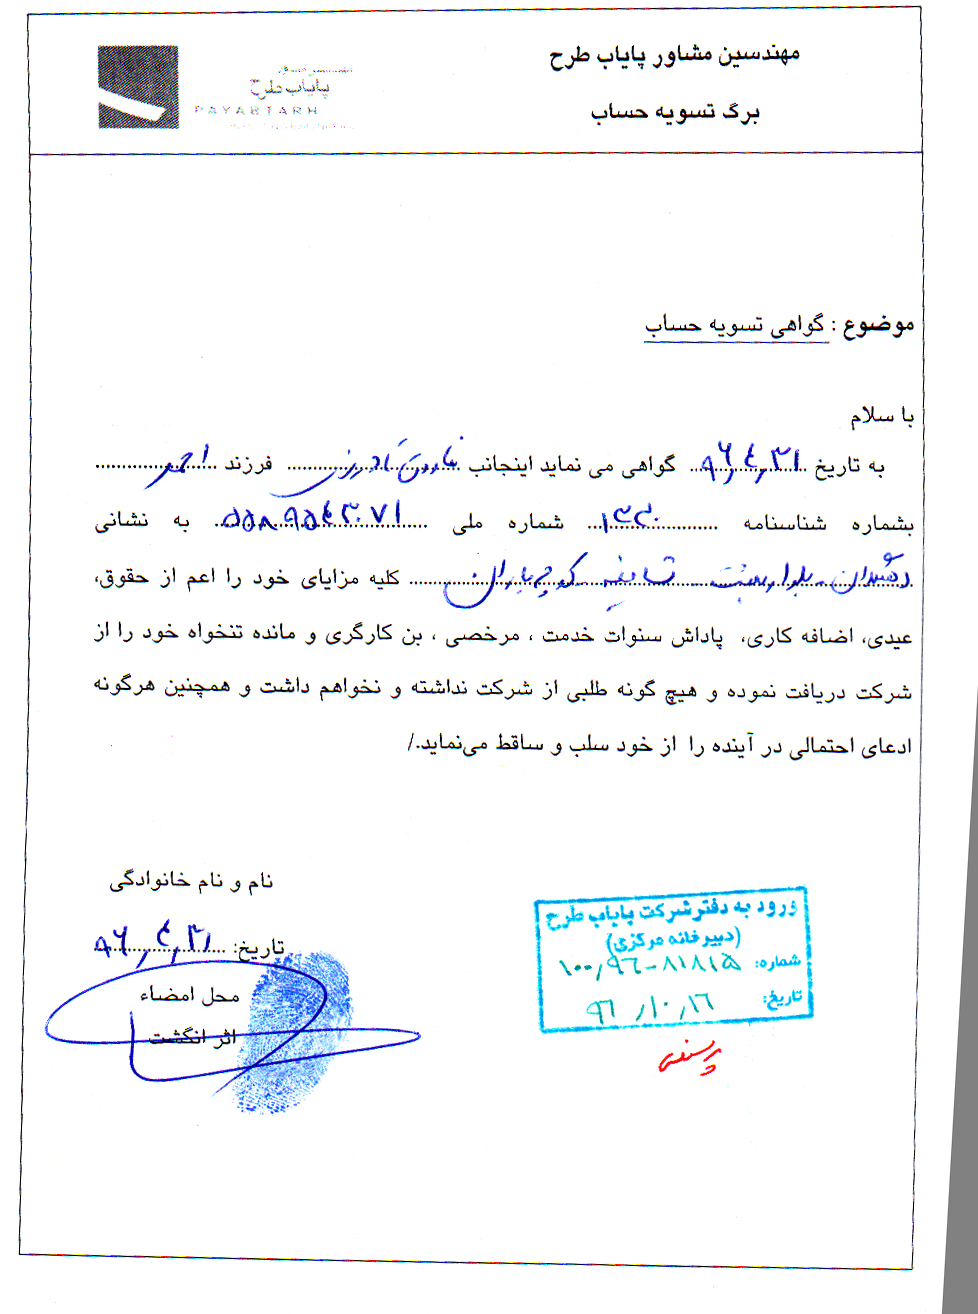 مهندسین مشاور پایاب طرح
برگ تسویه حساب
پایاب طرح
PAYABTARH
موضوع : گواهی تسویه حساب
با سلام
به تاریخ ۹۶,۴,۳۱ گواهی می نماید اینجانب فرزند احمد
بشماره شناسنامه ۱۳۳۰ شماره ملی ۵۵۸۹۵۴۳۰۷۱ به نشانی
کلیه مزایای خود را اعم از حقوق،
عیدی، اضافه کاری، پاداش سنوات خدمت ، مرخصی ، بن کارگری و مانده تنخواه خود را از
شرکت دریافت نموده و هیچ گونه طلبی از شرکت نداشته و نخواهم داشت و همچنین هرگونه
ادعای احتمالی در آینده را از خود سلب و ساقط می‌نماید./
نام و نام خانوادگی
تاریخ: ۹۶,۴,۳۱
محل امضاء
اثر انگشت
ورود به دفتر شرکت پایاب طرح
(دبیرخانه مرکزی)
شماره: ۱۰۰,۹۶-۸۱۸۱۵
تاریخ: ۹۶,۱۰,۱۶
پرسنلی